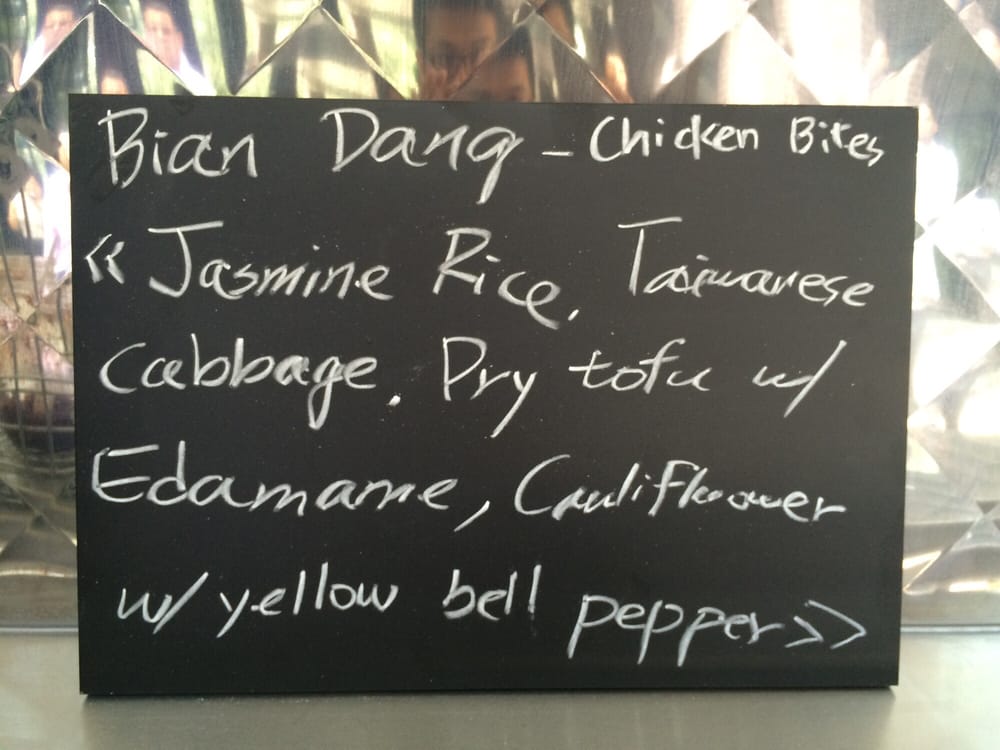 Bian Dang - Chicken Bites
<< Jasmine Rice, Taiwanese
Cabbage, Dry tofu w/
Edamame, Cauliflower
w/ yellow bell pepper >>